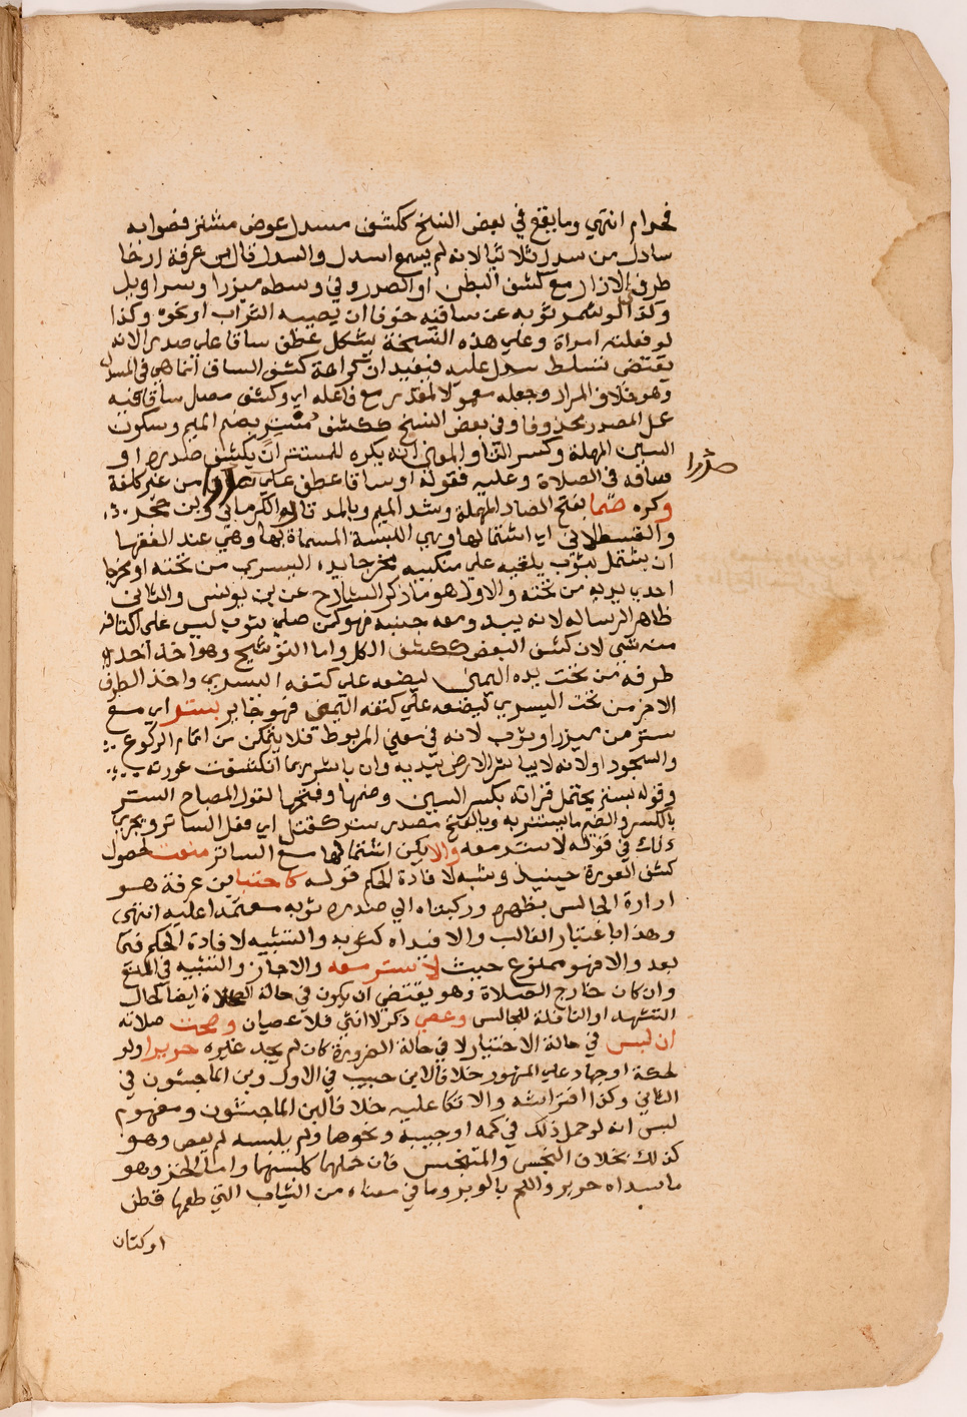 فحرام انتهي وما يقع في بعض النسخ ككشف مسدل عوض مشتز فصوابه
سادل من سدل ثلاثيا لانه لم يسمع اسدل والسدل قال ابن عرفة ارخا
طرفي الازار مع كشف البطن او الصدر وفي وسطه ميزر او سراويل
وكذا لو شمر ثوبه عن ساقيه خوفا ان يصيبه التراب او نحوه وكذا
لو فعلته امراة وعلي هذه النسخة يشكل عطف ساقا علي صدر لانه
يقتضي تسلط سدل عليه فيفيد ان كراهة كشف الساق انما هي في المسدل
وهو خلاف المراد وجعله معمولا لمقدر مع فاعله اي وكشف مصل ساقا فيه
عمل المصدر محذوفا وفي بعض النسخ ككشف مستتر بضم الميم وسكون
السين المهملة وكسر التاء والمعني انه يكره للمستتر ان يكشف صدره او
صدرا
ساقه في الصلاة وعليه فقوله او ساقا عطف علي من غير كلفة
وكره صما بفتح الصاد المهملة وشد الميم وبالمد قاله الكرماني وابن حجر
والقسطلاني اي اشتمالها وهي اللبسة المسماة بها وهي عند الفقها
ان يشتمل بثوب يلقيه علي منكبيه مخرجا يده اليسري من تحته او مخرجا
احدي يديه من تحته والاول هو ما ذكر الشارح عن ابن يونس والثاني
ظاهر الرساله لانه يبدو معه جنبه فهو كمن صلي بثوب ليس علي اكتافه
منه شي لان كشف البعض ككشف الكل واما التوشيح وهو اخذ احد
طرفه من تحت يده اليمني ليضعه علي كتفه اليسري واخذ الطرف
الاخر من تحت اليسري ليضعه علي كتفه اليمني فهو جايز بستر اي مع
ستر من ميزر او ثوب لانه في معني المربوط فلا يتمكن من اتمام الركوع
والسجود او لانه لا يباشر الارض بيديه وان باشر ربما انكشفت عورته
وقوله بستر يحتمل قراته بكسر السين وضمها وفتحها لقول المصباح الستر
بالكسر والضم ما يستتر به وبالفتح مصدر ستر كقتل اي فعل الساتر ويجري
ذلك في قوله لا ستر معه والا يكن اشتمالها مع الساتر منعت لحصول
كشف العورة حينيذ وشبه لا فادة الحكم قوله كاحتبا ابن عرفة هو
ادارة الجالس بظهره وركبتاه الي صدره ثوبه معتمدا عليه انتهي
وهذا باعتبار الغالب والا فيداه كثوبه والتشبيه لافادة الحكم فيما
بعد والا فهو ممنوع حيث لا ستر معه والا جاز والتشبيه في المنع
وان كان خارج الصلاة وهو يقتضي ان يكون في حالة الصلاة ايضا لحال
التشهد او النافلة للجالس وعصي ذكر لا انثي فلا عصيان وصحت صلاته
ان لبس في حالة الاختيار لا في حالة الضرورة كان لم يجد غيره حريرا ولو
لحكة او جهاد علي المشهور خلافا لابن حبيب في الاول وبن الماجشون في
الثاني وكذا افتراشه والاتكا عليه خلافا لبن الماجشون ومفهوم
لبس انه لو حمل ذلك في كمه او جيبه ونحوها ولم يلبسه لم يعص وهو
كذلك بخلاف النجس والمتنجس فان حملهما كلبسهما واما الخز وهو
ما سداه حرير واللحم بالوبر وما في معناه من الثياب التي طعمها قطن
او كتان